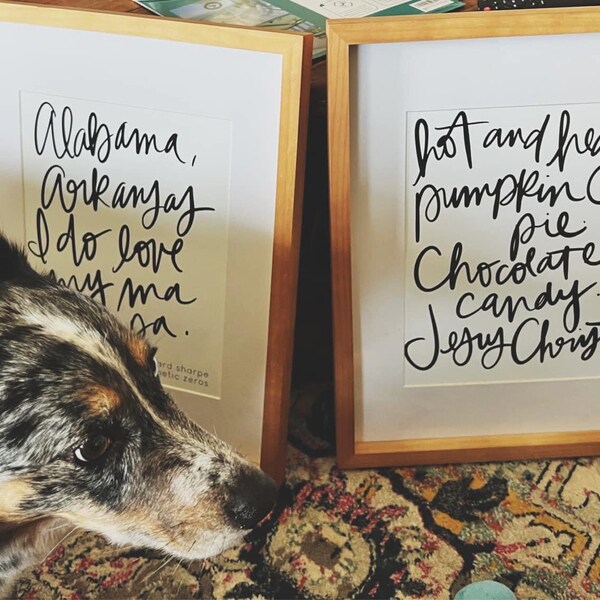 Alabama,
Arkansas
I do love
my ma
pa.
ard sharpe
netic zeros
hot and hea
pumpkin
pie.
Chocolate
candy.
Jesus Christ